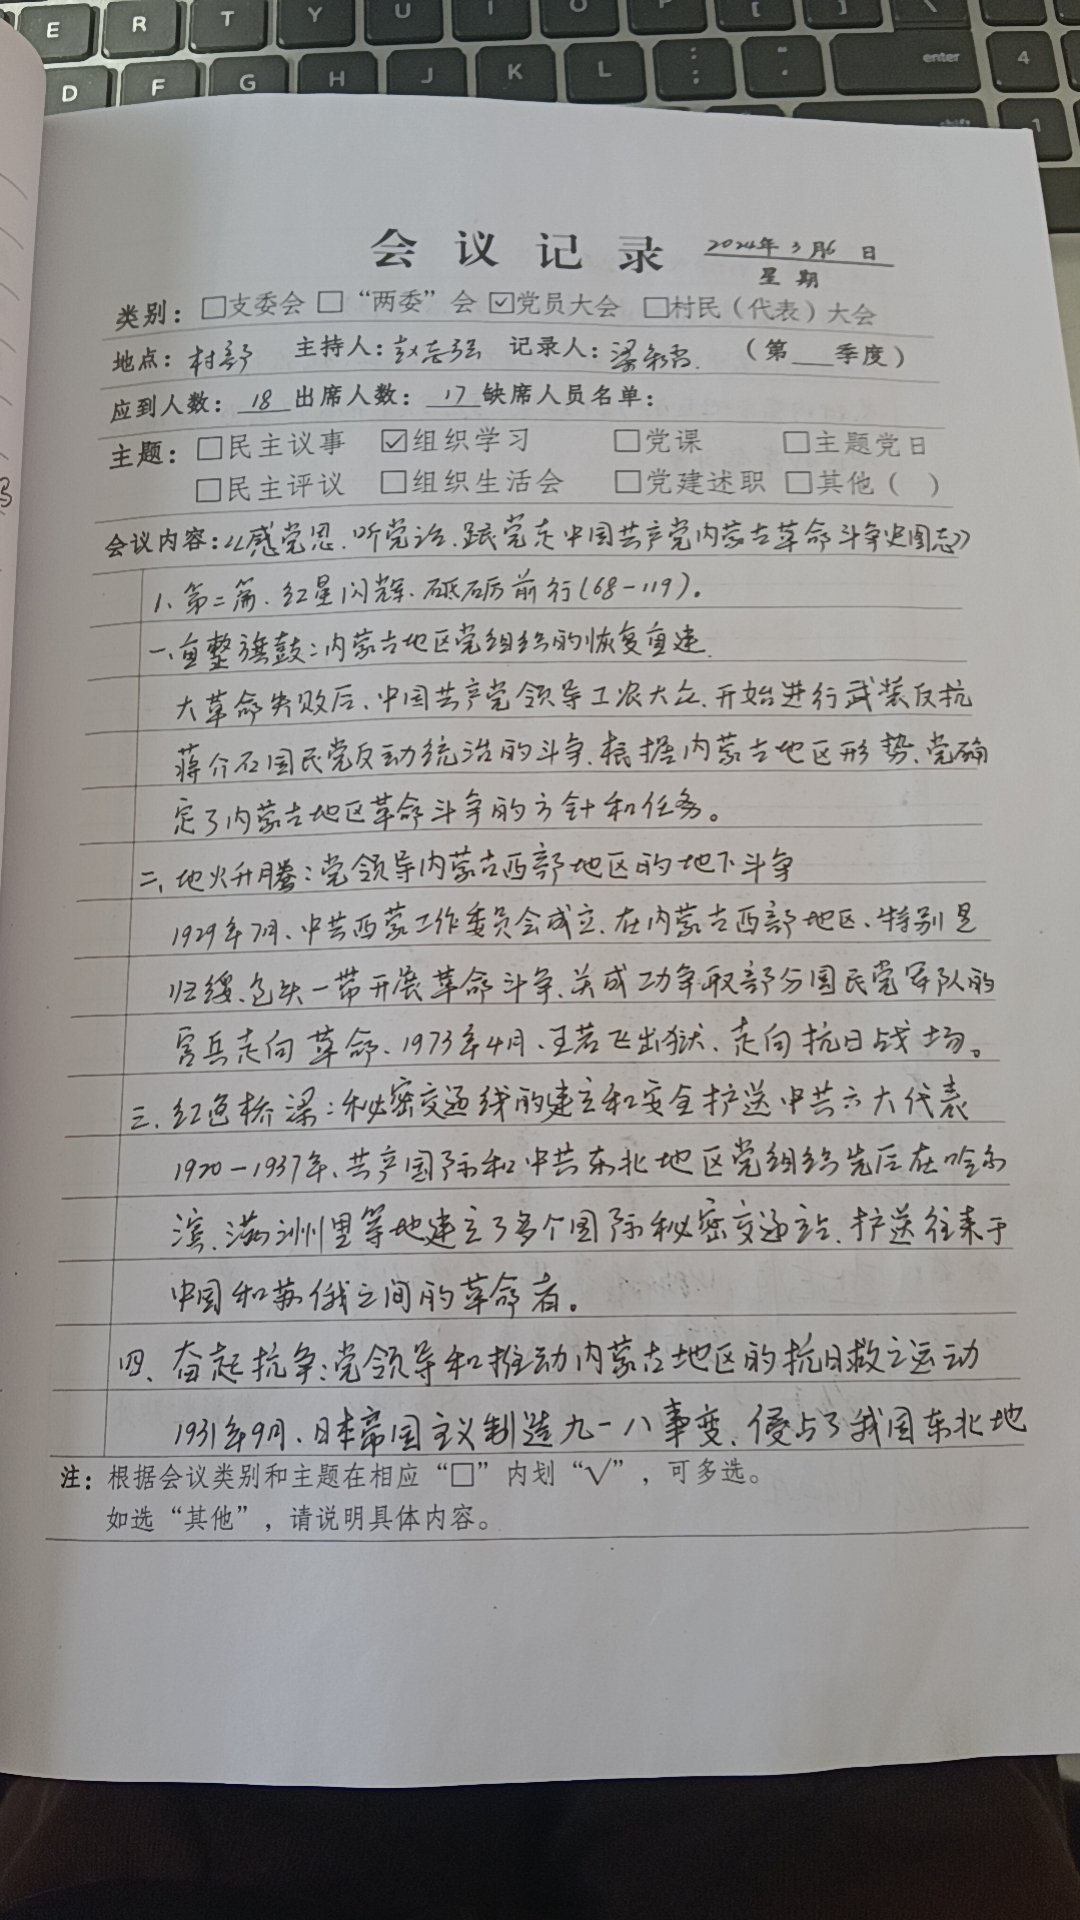 会议记录 2024年3月6日
星期
类别：□支委会 □“两委”会 ☑党员大会 □村民（代表）大会
地点：村部 主持人：赵志强 记录人：梁 （第 季度）
应到人数：18 出席人数：17 缺席人员名单：
主题：□民主议事 ☑组织学习 □党课 □主题党日
□民主评议 □组织生活会 □党建述职 □其他（ ）
会议内容：《感党恩、听党话、跟党走中国共产党内蒙古革命斗争史图志》
1、第二篇、红星闪辉、砥砺前行（68-119）。
一、重整旗鼓：内蒙古地区党组织的恢复重建、
大革命失败后、中国共产党领导工农大众、开始进行武装反抗
蒋介石国民党反动统治的斗争、根据内蒙古地区形势、党确
定了内蒙古地区革命斗争的方针和任务。
二、地火升腾：党领导内蒙古西部地区的地下斗争
1929年7月、中共西蒙工作委员会成立、在内蒙古西部地区、特别是
归绥、包头一带开展革命斗争、并成功争取部分国民党军队的
官兵走向革命、1973年4月、王若飞出狱、走向抗日战场。
三、红色桥梁：秘密交通线的建立和安全护送中共六大代表
1920-1937年、共产国际和中共东北地区党组织先后在哈尔
滨、满洲里等地建立了多个国际秘密交通站、护送往来于
中国和苏俄之间的革命者。
四、奋起抗争：党领导和推动内蒙古地区的抗日救亡运动
1931年9月、日本帝国主义制造九一八事变、侵占了我国东北地
注：根据会议类别和主题在相应“□”内划“√”，可多选。
如选“其他”，请说明具体内容。
E R T Y U I O P [ ] \
D F G H J K L : ; " ' enter 4
shift 1